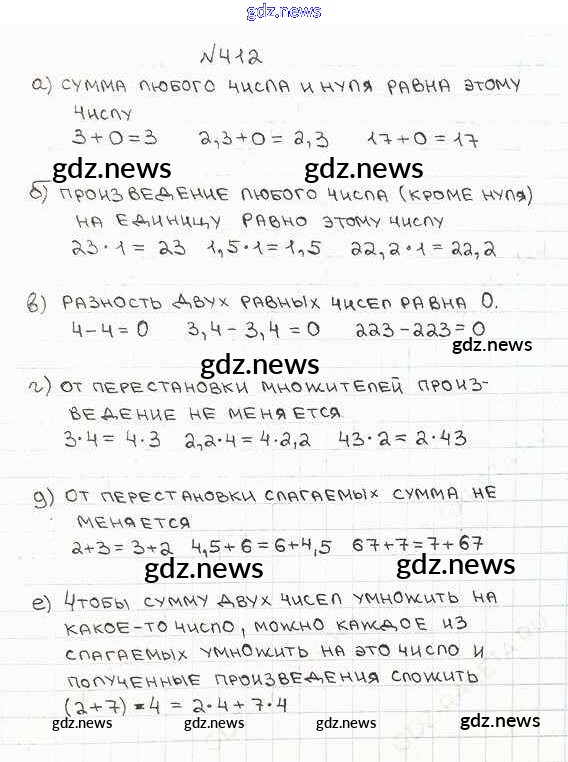 gdz.news
№412
а) СУММА ЛЮБОГО ЧИСЛА И НУЛЯ РАВНА ЭТОМУ
ЧИСЛУ
3+0=3 2,3+0=2,3 17+0=17
gdz.news gdz.news
б) ПРОИЗВЕДЕНИЕ ЛЮБОГО ЧИСЛА (КРОМЕ НУЛЯ)
НА ЕДИНИЦУ РАВНО ЭТОМУ ЧИСЛУ
23·1=23 1,5·1=1,5 22,2·1=22,2
в) РАЗНОСТЬ ДВУХ РАВНЫХ ЧИСЕЛ РАВНА 0.
4-4=0 3,4-3,4=0 223-223=0
gdz.news
gdz.news
г) ОТ ПЕРЕСТАНОВКИ МНОЖИТЕЛЕЙ ПРОИЗ-
ВЕДЕНИЕ НЕ МЕНЯЕТСЯ
3·4=4·3 2,2·4=4·2,2 43·2=2·43
д) ОТ ПЕРЕСТАНОВКИ СЛАГАЕМЫХ СУММА НЕ
МЕНЯЕТСЯ
2+3=3+2 4,5+6=6+4,5 67+7=7+67
gdz.news gdz.news
е) ЧТОБЫ СУММУ ДВУХ ЧИСЕЛ УМНОЖИТЬ НА
КАКОЕ-ТО ЧИСЛО, МОЖНО КАЖДОЕ ИЗ
СЛАГАЕМЫХ УМНОЖИТЬ НА ЭТО ЧИСЛО И
ПОЛУЧЕННЫЕ ПРОИЗВЕДЕНИЯ СЛОЖИТЬ
(2+7)·4=2·4+7·4
gdz.news gdz.news gdz.news gdz.news